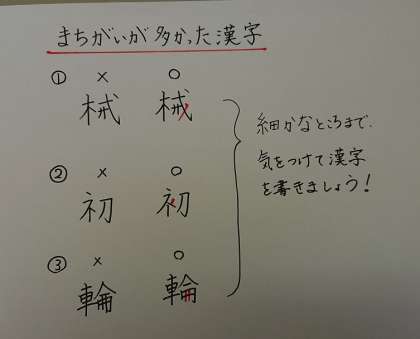 まちがいが多かった漢字
① × ○
械 械
② × ○
初 初
③ × ○
輪 輪
細かなところまで、
気をつけて漢字
を書きましょう!